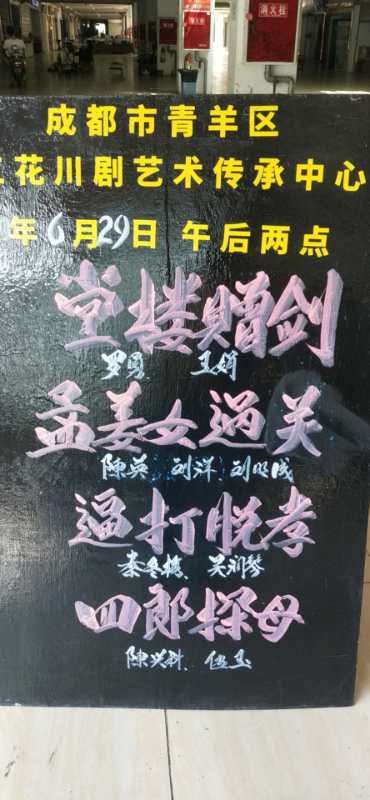 消火栓
成都市青羊区
花川剧艺术传承中心
年6月29日 午后两点
堂楼赠剑
罗勇、 王娟
孟姜女过关
陈英 刘洋、刘明成
逼打脱孝
秦冬梅、吴润琴
四郎探母
陈兴林、伍玉